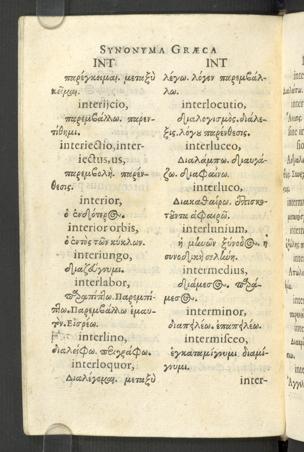 SYNONYMA GRÆCA
INT
παρέγκειμαι. μεταξὺ
κεῖμαι.
interijcio,
παρεμβάλλω. παρεν-
τίθημι.
interiectio, inter-
iectus, us,
παρεμβολή. παρέν-
θεσις.
interior,
ὁ ἐνδότερος.
interior orbis,
ὁ ἐντὸς τῶν κύκλων.
interiungo,
διαζεύγνυμι.
interlabor,
παραπίπτω. Παρεμπί-
πτω. Παρεμβάλλω ἐμαυ-
τὸν. Εἰσρέω.
interlino,
διαλείφω. περιγράφω.
interloquor,
Διαλέγομαι. μεταξὺ
INT
λέγω. λόγον παρεμβάλ-
λω.
interlocutio,
διαλογισμὸς. διάλε-
ξις. λόγου παρένθεσις.
interluceo,
Διαλάμπω. διαυγά-
ζω. διαφαίνω.
interluco,
Διακαθαίρω.
interlunium,
ἡ μηνῶν ξύνοδος. ἡ
συνοδικὴ σελήνη.
intermedius,
διάμεσος. παρά-
μεσος.
interminor,
διαπειλέω. ἐπαπειλέω.
intermisceo,
ἐγκαταμίγνυμι. διαμί-
γνυμι.
inter-